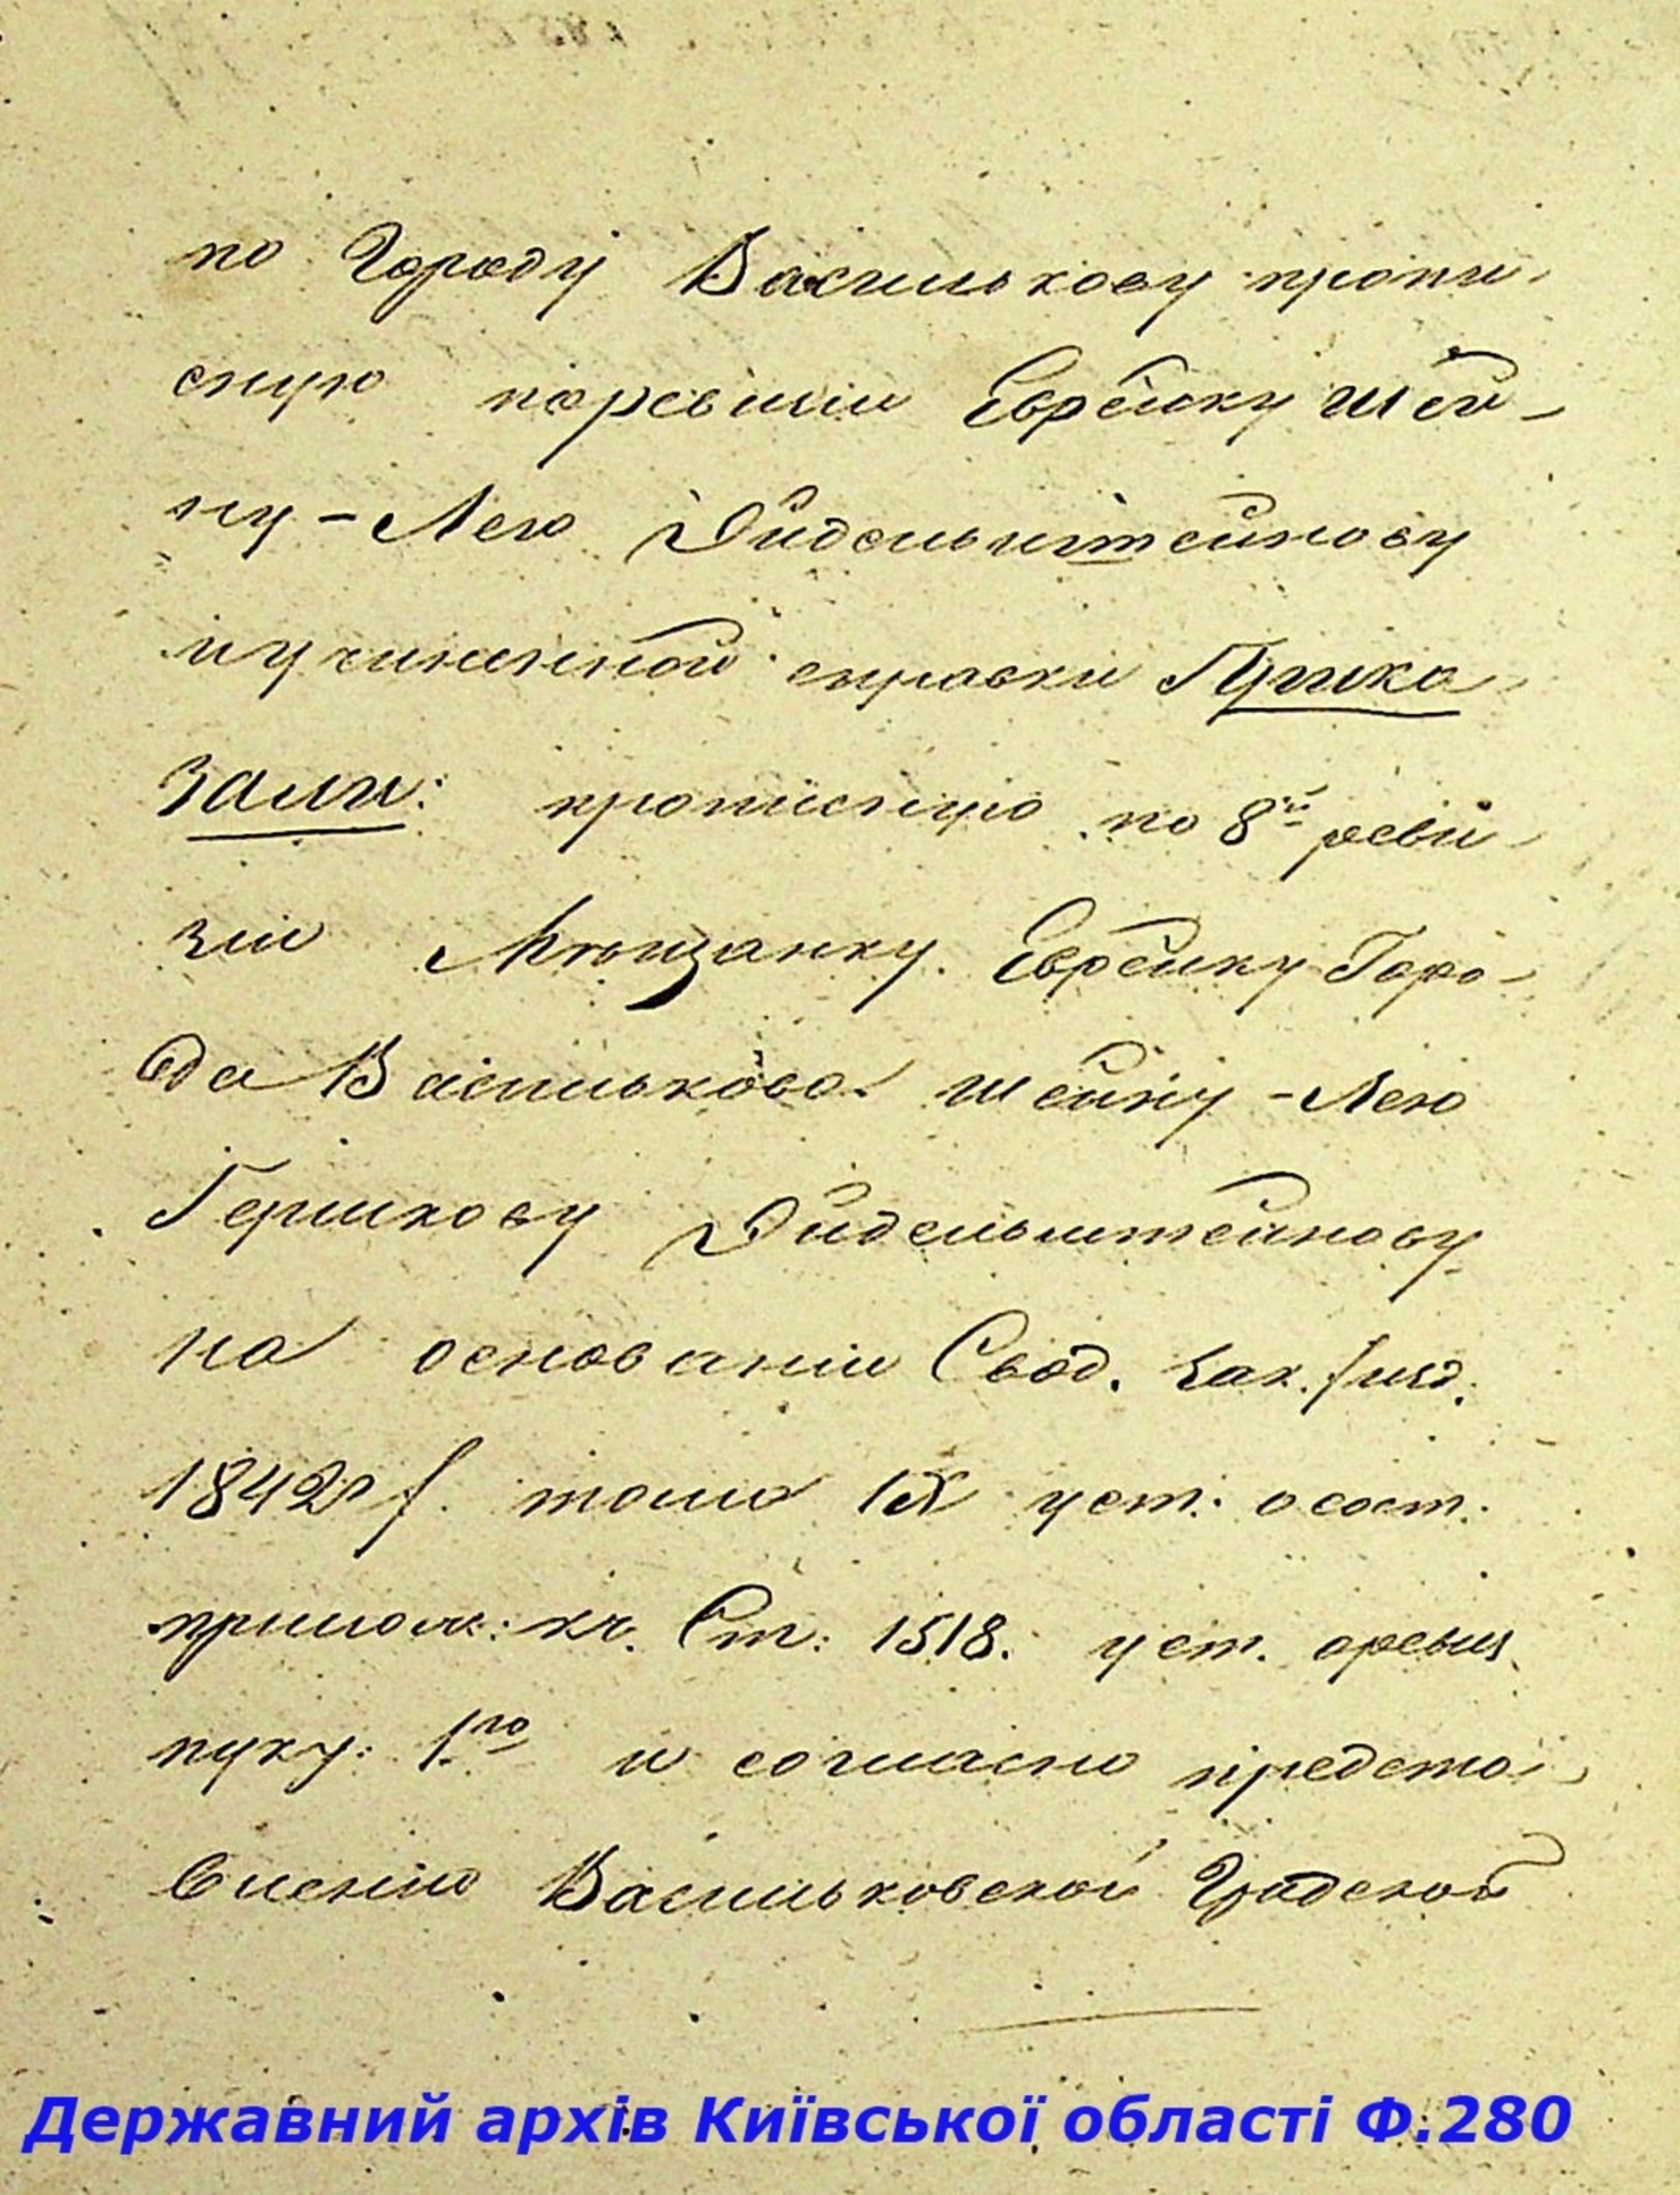 по Городу Василькову пропи-
сную поревизіи Еврейку Шей-
ну-Лею Эйдельштейнову
иучиненной справки Прика-
зали: прописную по 8й реви-
зіи Мѣщанку Еврейку Горо-
да Василькова Шейну-Лею
Гершкову Эйдельштейнову
на основаніи Свод. Зак. изд.
1842 г. тома IX уст: осост.
прилож: къ. Ст: 1518. уст. оревиз.
пунк: 1го и согласно предста-
вленію Васильковской Градской
Державний архів Київської області Ф.280